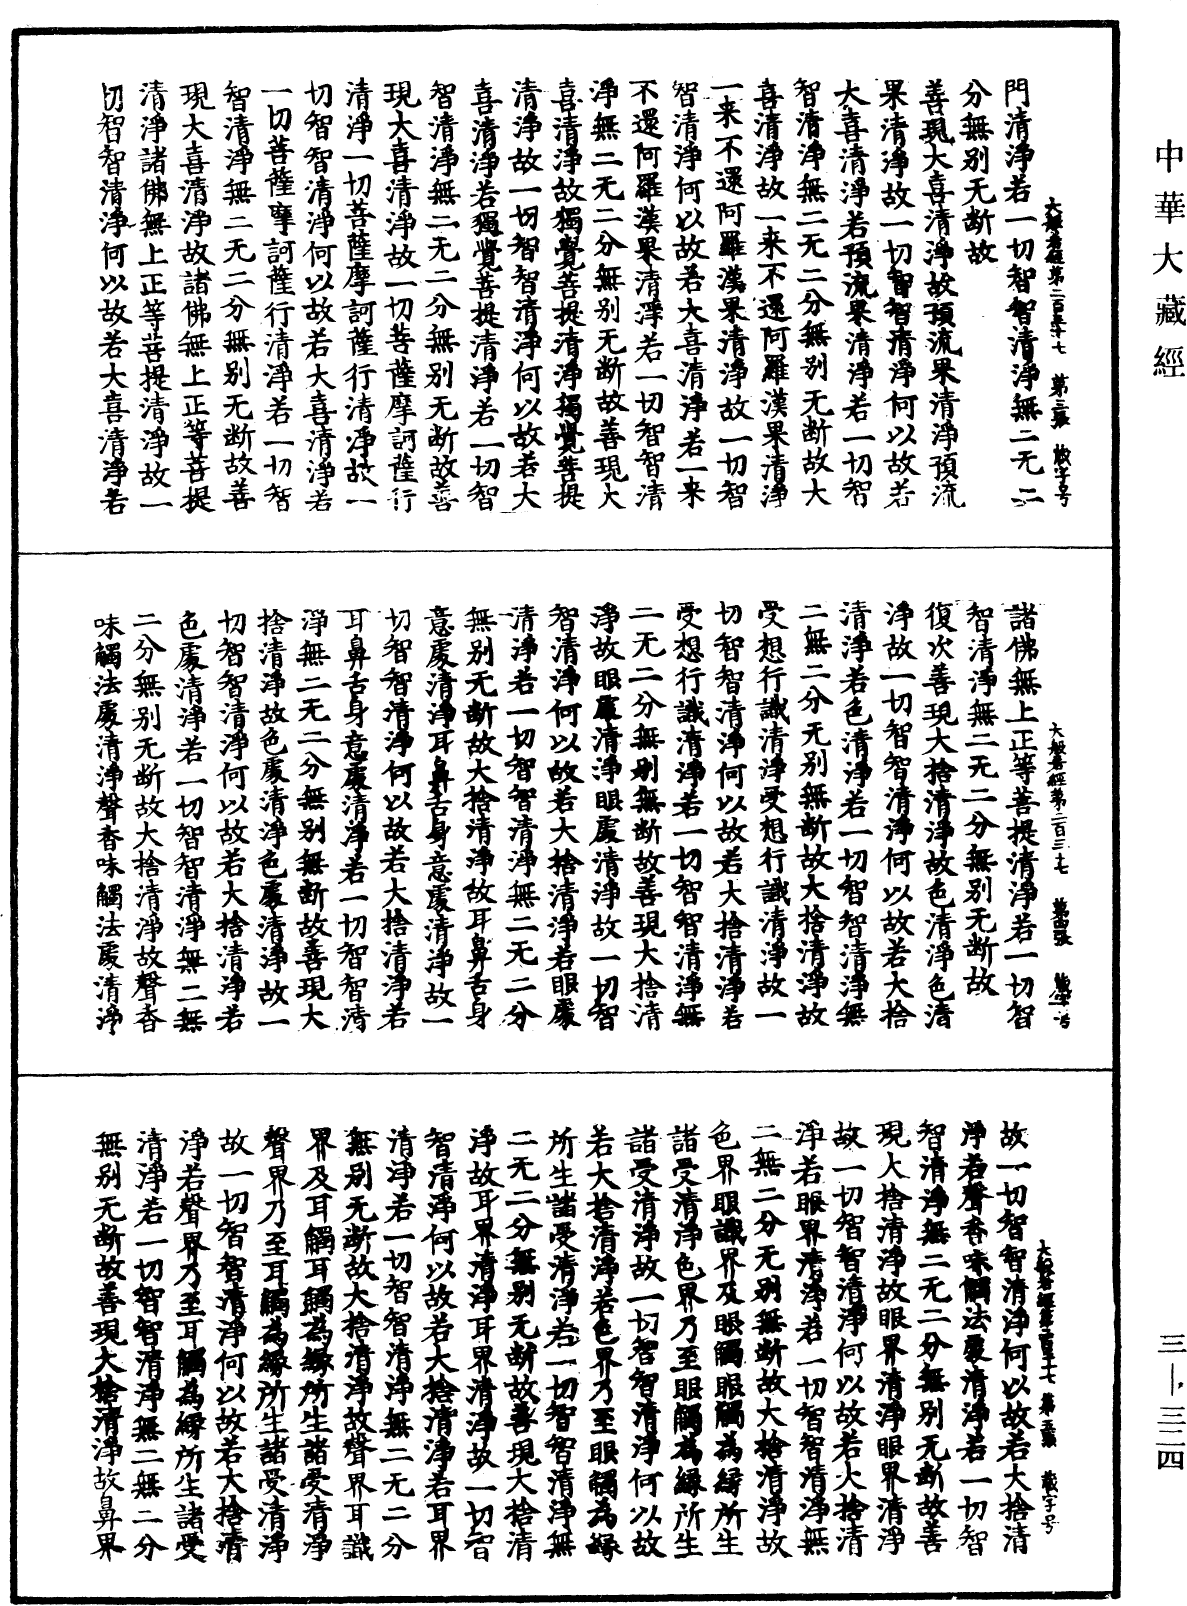 中華大藏經
大般若經第二百三十七 第三張 
門清淨若一切智智清淨無二无二
分無别无断故
善現大喜清淨故預流果清淨預流
果清淨故一切智智清淨何以故若
大喜清淨若預流果清淨若一切智
智清淨無二无二分無别无断故大
喜清淨故一来不還阿羅漢果清淨
一来不還阿羅漢果清淨故一切智
智清淨何以故若大喜清淨若一来
不還阿羅漢果清淨若一切智智清
淨無二无二分無别无断故善現大
喜清淨故獨覺菩提清淨獨覺菩提
清淨故一切智智清淨何以故若大
喜清淨若獨覺菩提清淨若一切智
智清淨無二无二分無别无断故善
現大喜清淨故一切菩薩摩訶薩行
清淨一切菩薩摩訶薩行清淨故一
切智智清淨何以故若大喜清淨若
一切菩薩摩訶薩行清淨若一切智
智清淨無二无二分無别无断故善
現大喜清淨故諸佛無上正等菩提
清淨諸佛無上正等菩提清淨故一
切智智清淨何以故若大喜清淨若
大般若經第二百三七 第四張
諸佛無上正等菩提清淨若一切智
智清淨無二无二分無别无断故
復次善現大捨清淨故色清淨色清
淨故一切智智清淨何以故若大捨
清淨若色清淨若一切智智清淨無
二無二分无别無断故大捨清淨故
受想行識清淨受想行識清淨故一
切智智清淨何以故若大捨清淨若
受想行識清淨若一切智智清淨無
二无二分無别無断故善現大捨清
淨故眼處清淨眼處清淨故一切智
智清淨何以故若大捨清淨若眼處
清淨若一切智智清淨無二无二分
無别无断故大捨清淨故耳鼻舌身
意處清淨耳鼻舌身意處清淨故一
切智智清淨何以故若大捨清淨若
耳鼻舌身意處清淨若一切智智清
淨無二无二分無别無断故善現大
捨清淨故色處清淨色處清淨故一
切智智清淨何以故若大捨清淨若
色處清淨若一切智智清淨無二無
二分無别无断故大捨清淨故聲香
味觸法處清淨聲香味觸法處清淨
大般若經第二百三十七 第五張 
故一切智智清淨何以故若大捨清
淨若聲香味觸法處清淨若一切智
智清淨無二无二分無别无断故善
現大捨清淨故眼界清淨眼界清淨
故一切智智清淨何以故若大捨清
淨若眼界清淨若一切智智清淨無
二無二分无别無断故大捨清淨故
色界眼識界及眼觸眼觸為緣所生
諸受清淨色界乃至眼觸為緣所生
諸受清淨故一切智智清淨何以故
若大捨清淨若色界乃至眼觸為緣
所生諸受清淨若一切智智清淨無
二无二分無别无断故善現大捨清
淨故耳界清淨耳界清淨故一切智
智清淨何以故若大捨清淨若耳界
清淨若一切智智清淨無二无二分
無别无断故大捨清淨故聲界耳識
界及耳觸耳觸為緣所生諸受清淨
聲界乃至耳觸為緣所生諸受清淨
故一切智智清淨何以故若大捨清
淨若聲界乃至耳觸為緣所生諸受
清淨若一切智智清淨無二無二分
無别无断故善現大捨清淨故鼻界
三—三二四